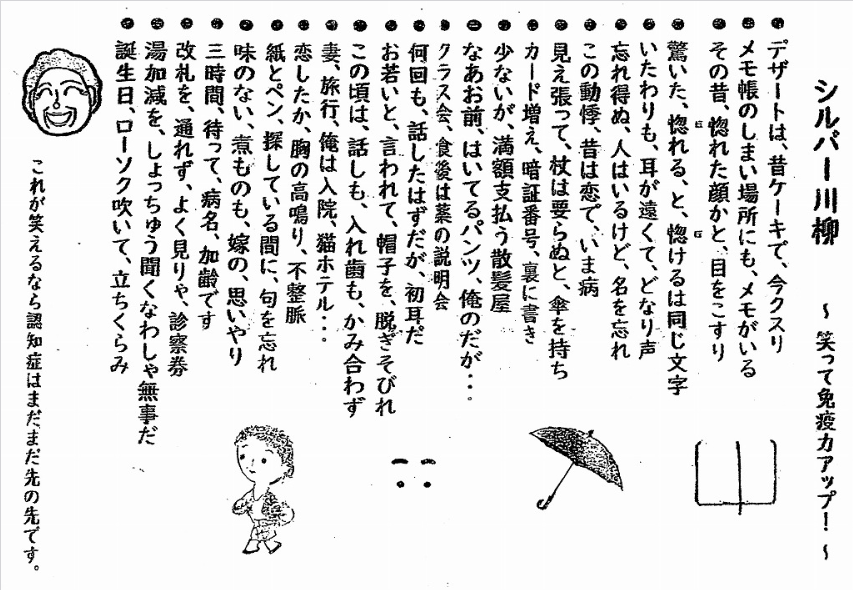 シルバー川柳　～ 笑って免疫力アップ！ ～
●デザートは、昔ケーキで、今クスリ
●メモ帳のしまい場所にも、メモがいる
●その昔、惚れた顔かと、目をこすり
●驚いた、惚れる、と、惚けるは同じ文字
●いたわりも、耳が遠くて、どなり声
●忘れ得ぬ、人はいるけど、名を忘れ
●この動悸、昔は恋で、いま病
●見え張って、杖は要らぬと、傘を持ち
●カード増え、暗証番号、裏に書き
●少ないが、満額支払う散髪屋
●なあお前、はいてるパンツ、俺のだが・・・
●クラス会、食後は薬の説明会
●何回も、話したはずだが、初耳だ
●お若いと、言われて、帽子を、脱ぎそびれ
●この頃は、話しも、入れ歯も、かみ合わず
●妻、旅行、俺は入院、猫ホテル・・・
●恋したか、胸の高鳴り、不整脈
●紙とペン、探している間に、句を忘れ
●味のない、煮ものも、嫁の、思いやり
●三時間、待って、病名、加齢です
●改札を、通れず、よく見りゃ、診察券
●湯加減を、しょっちゅう聞くなわしゃ無事だ
●誕生日、ローソク吹いて、立ちくらみ
これが笑えるなら認知症はまだまだ先の先です。